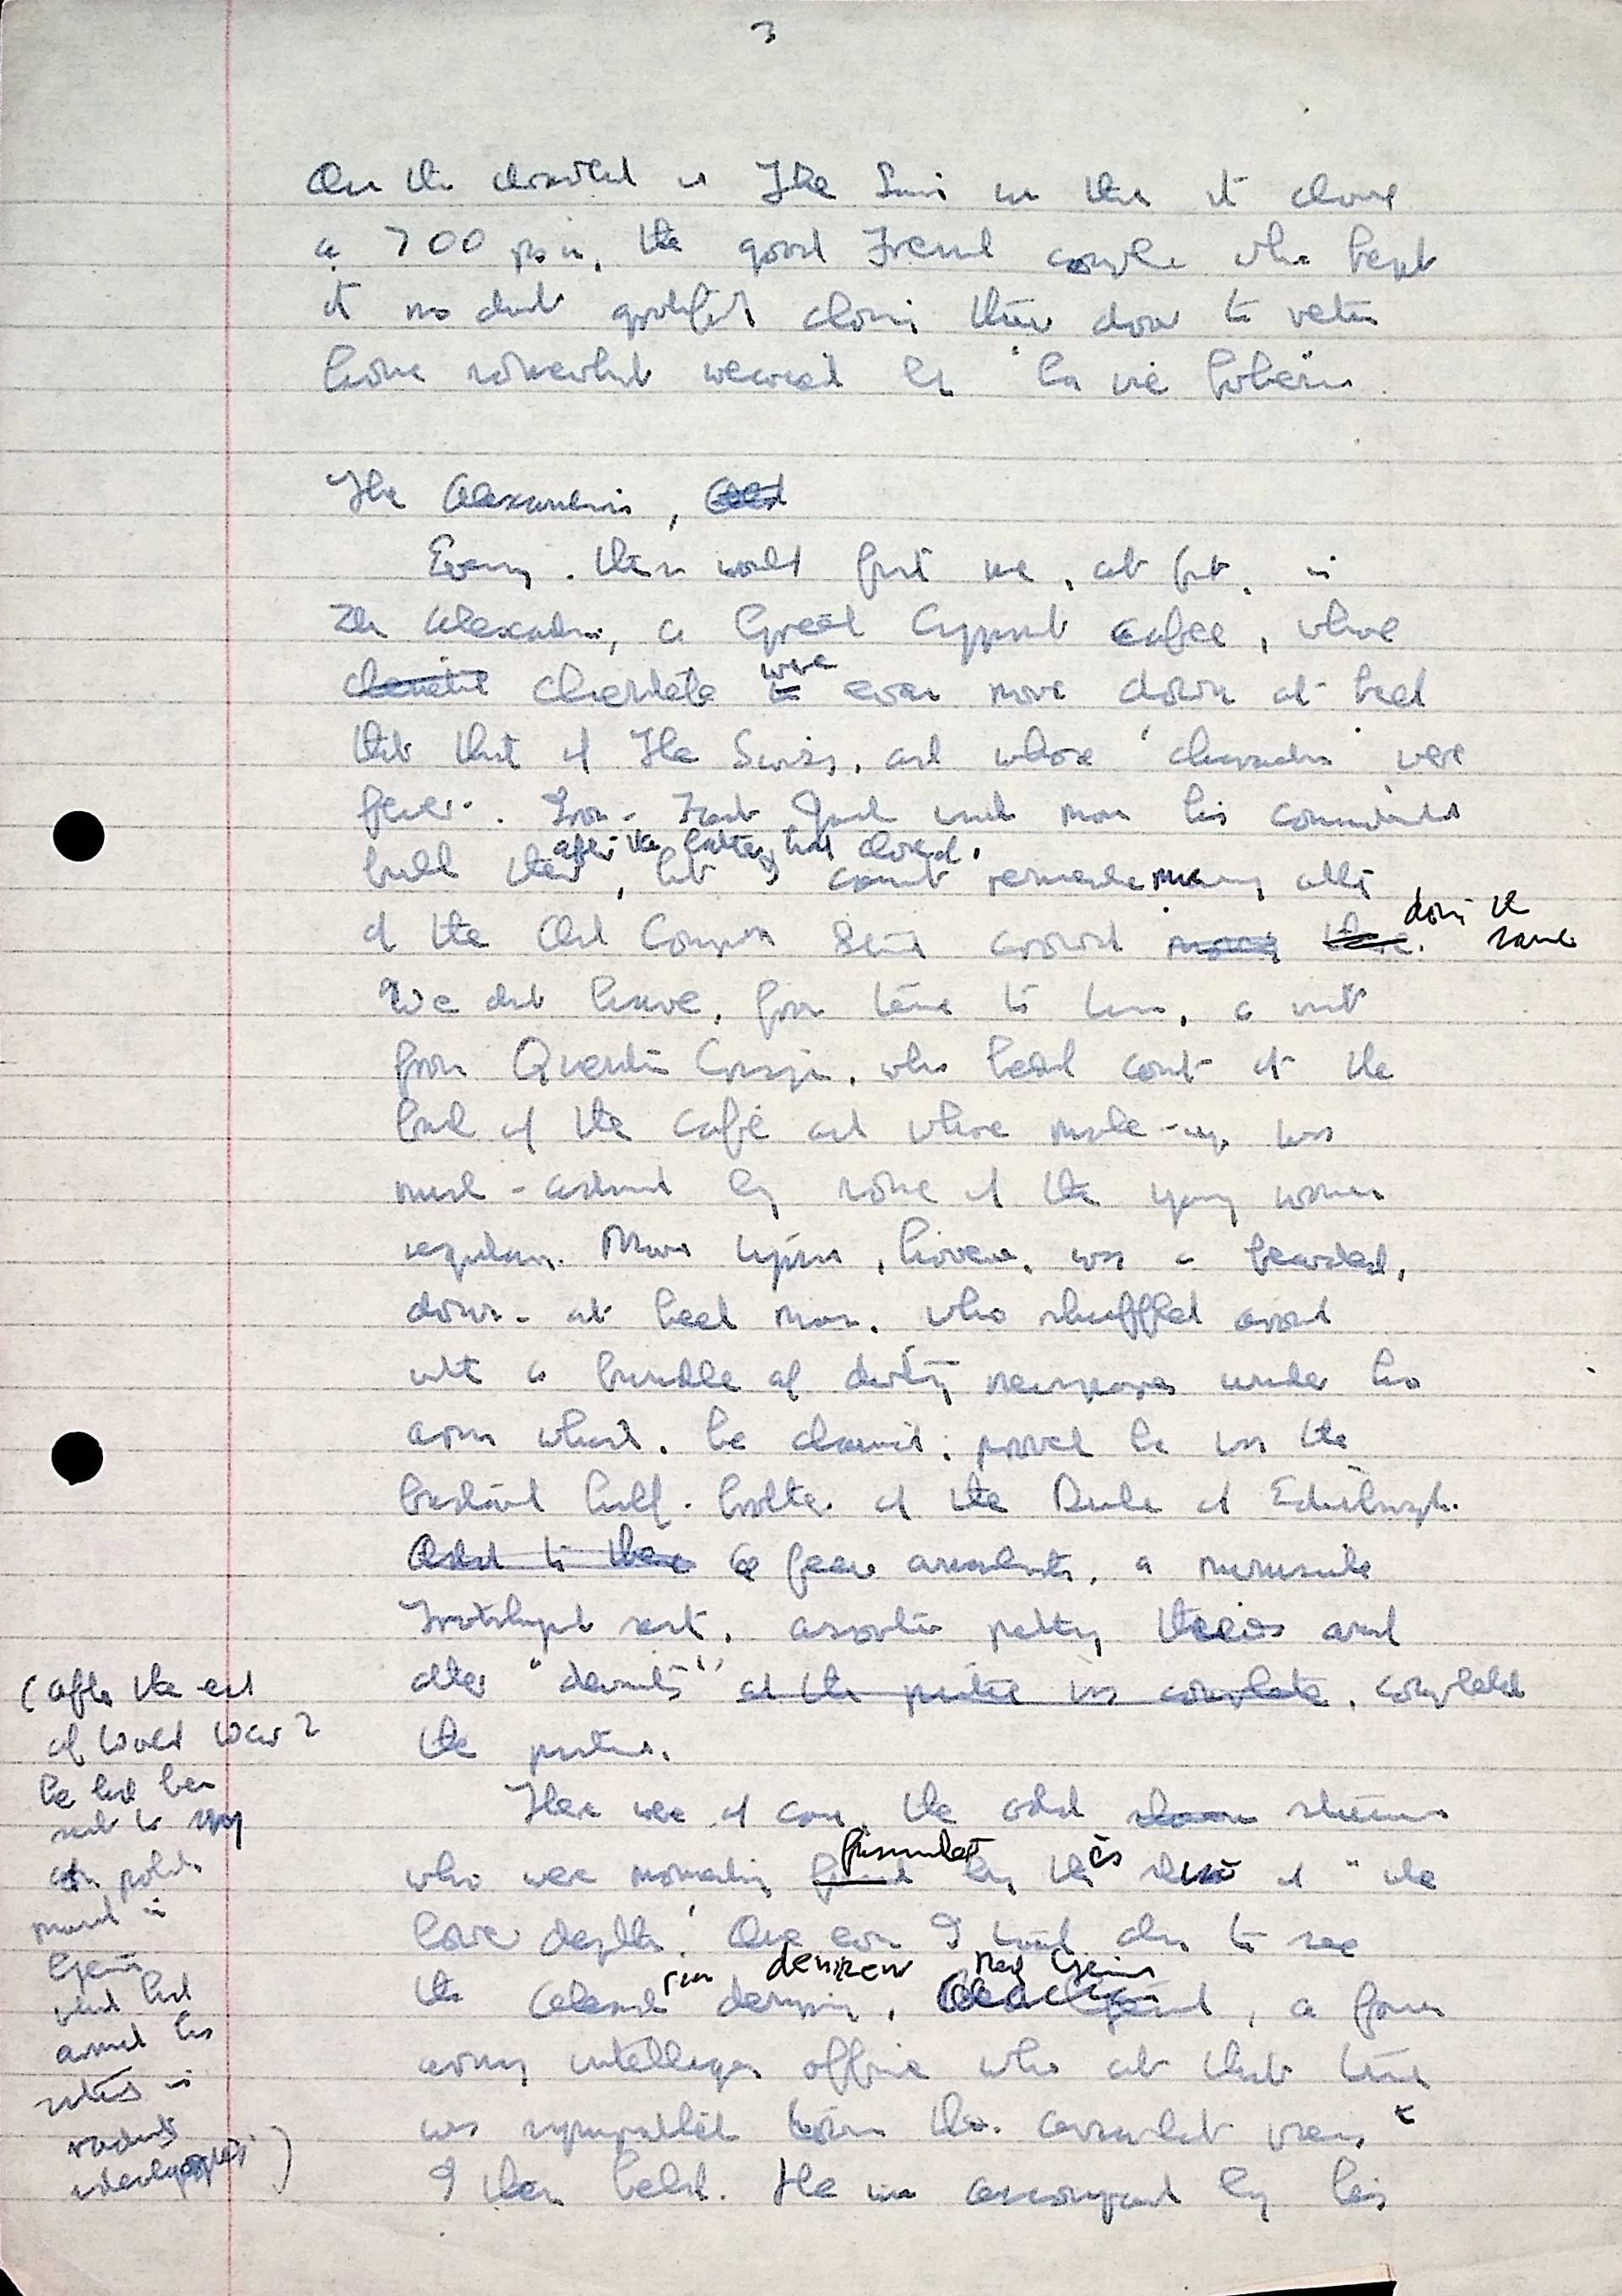 3
One the drawback of The Swiss was that it closed
at 7.00 p.m., the good French couple who kept
it no doubt gratefully closing their door to return
home somewhat wearied by "la vie bohème".
The Alexandria,
Evening. then would find me, at first, in
The Alexandria, a Greek Cypriot cafee, where
clientele were even more down at heel
that that of The Swiss, and whose 'characters' were
fewer. Iron-Foot Jack and his
held there after the latter had closed, but I cannot remember many other
of the Old Compton Street crowd doing the same
We did have, from time to time, a visit
from Quentin Crisp, who held court at the
back of the café and where make-up was
much-admired by some of the young women
regulars. More typical, however, was a bearded,
down-at heel man, who shuffled around
with a bundle of dirty newspapers under his
arm which, he claimed, proved he was the
bastard half-brother of the Duke of Edinburgh.
Add to these a few anarchists, a minuscule
Trotskyist sect, assorted petty thieves and
other "deviants" and the picture was complete, completed
the picture.
There were of course, the odd visitors
who were momentarily fascinated by the of "the
lower depths". One evening I went there to see
the a former
army intelligence officer who at that time
was sympathetic towards the anarchist views
I then held. He was accompanied by his
(after the end
of World War 2
he had been
sent to spy
on political
in
and had
his
in
radical
ideologies)